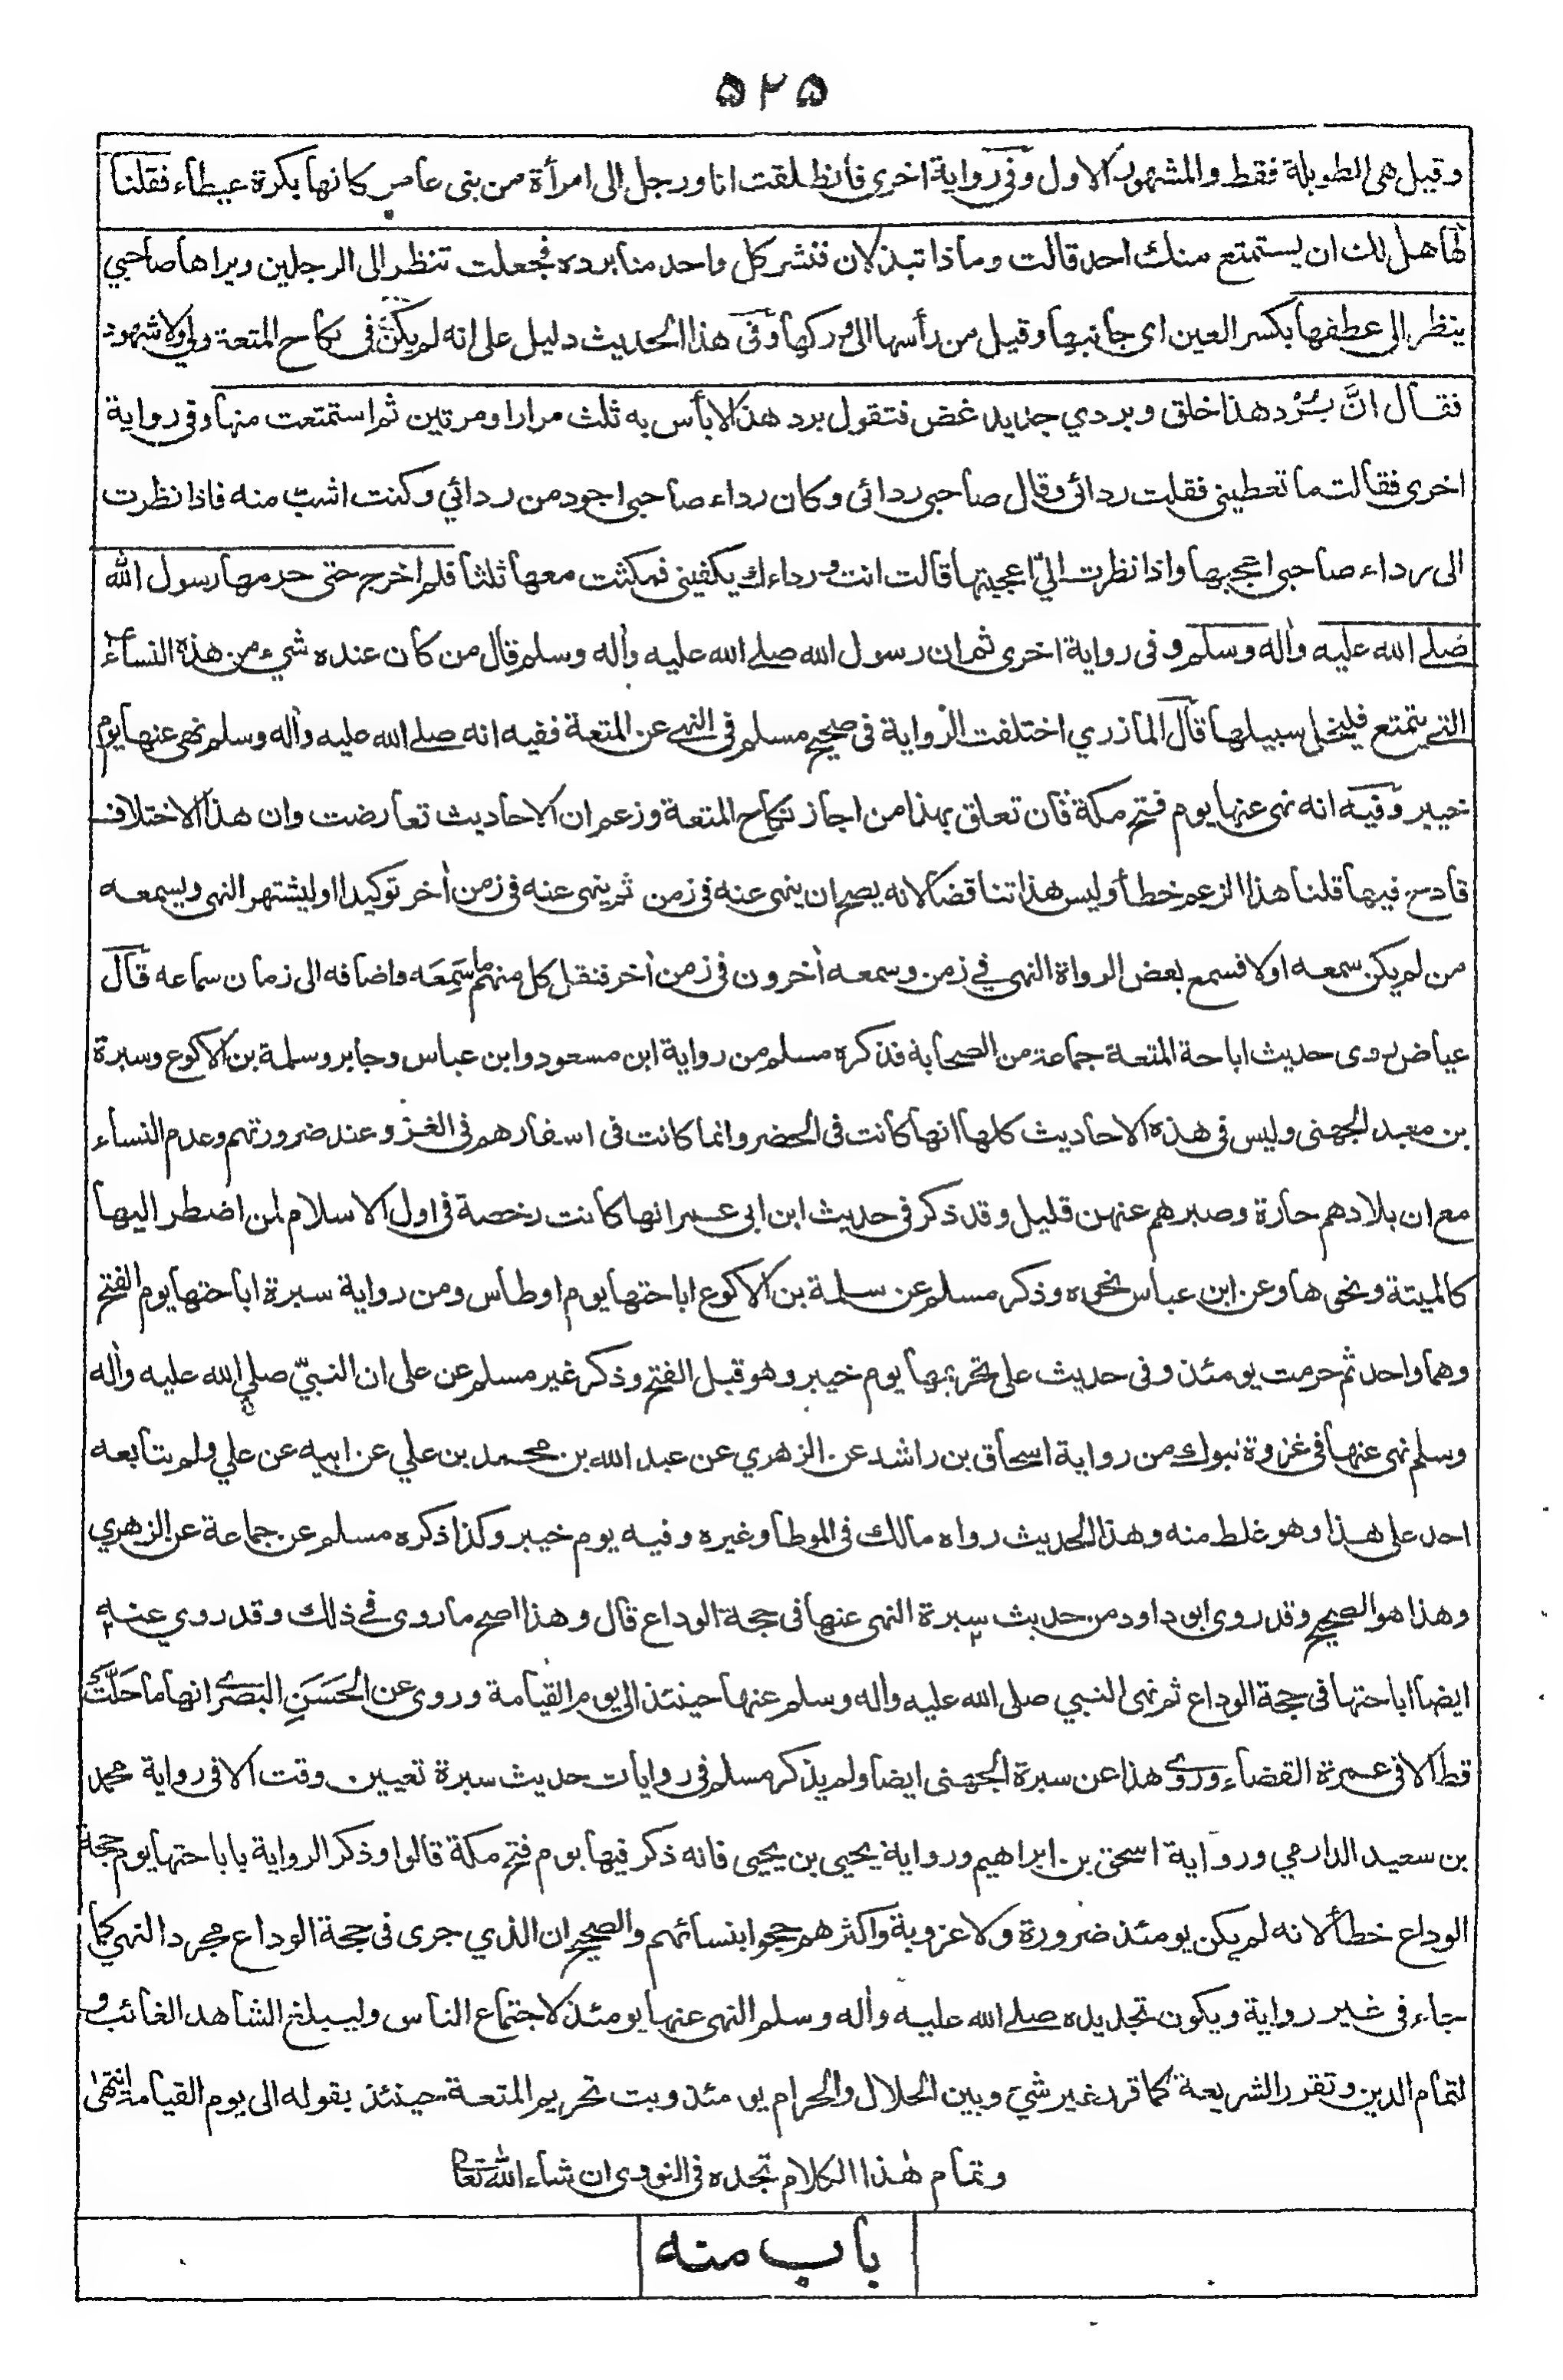 ٥٢٥
وقيل هى الطويلة فقط والمشهور الاول وفى رواية اخرى فانطلقت انا ورجل الى امرأة من بنى عامر كانها بكرة عيطاء فقلنا
لها هل لك ان يستمتع منك احد قالت وماذا تبذلان فنشر كل واحد منا برده فجعلت تنظر الى الرجلين ويراها صاحبي
ينظر الى عطفها بكسر العين اى جانبها وقيل من رأسها الى وركها وفى هذا الحديث دليل على انه لم يكن فى نكاح المتعة ولى ولا شهود
فقال انَّ بُرْد هذا خلق وبردي جديد غض فتقول برد هذا لا بأس به ثلث مرار او مرتين ثم استمتعت منها وفى رواية
اخرى فقالت ما تعطينى فقلت ردائى وقال صاحبى ردائى وكان رداء صاحبى اجود من ردائي وكنت اشبّ منه فاذا نظرت
الى رداء صاحبى اعجبها واذا نظرت اليّ اعجبتها قالت انت ورداءك يكفينى فمكثت معها ثلثا فلم اخرج حتى حرمها رسول الله
صلے الله عليه واٰله وسلم وفى رواية اخرى ثم ان رسول الله صلے الله عليه واٰله وسلم قال من كان عنده شيء من هذه النساء
التے يتمتع فليخل سبيلها قال المازري اختلفت الرواية فى صحيح مسلم فى النهے عن المتعة ففيه انه صلے الله عليه واٰله وسلم نهى عنها يوم
خيبر وفيه انه نهى عنها يوم فتح مكة فان تعلق بهذا من اجاز نكاح المتعة وزعم ان الاحاديث تعارضت وان هذا الاختلاف
قادح فيها قلنا هذا الزعم خطأ وليس هذا تناقضا لانه يصح ان ينهى عنه فى زمن ثم ينهى عنه فى زمن اٰخر توكيدا او ليشتهر النهى ويسمعه
من لم يكن سمعه اولا فسمع بعض الرواة النهى في زمن وسمعه اٰخرون فى زمن اٰخر فنقل كل منهم ما سَمِعَه واضافه الى زمان سماعه قال
عياض روى حديث اباحة المتعة جماعة من الصحابة فذكره مسلم من رواية ابن مسعود وابن عباس وجابر وسلمة بن الاكوع وسبرة
بن معبد الجهنى وليس فى هذه الاحاديث كلها انها كانت فى الحضر وانما كانت فى اسفارهم فى الغزو عند ضرورتهم وعدم النساء
مع ان بلادهم حارة وصبرهم عنهن قليل وقد ذكر فى حديث ابن ابى عمر انها كانت رخصة فى اول الاسلام لمن اضطر اليها
كالميتة ونحوها وعن ابن عباس نحوه وذكر مسلم عن سلمة بن الاكوع اباحتها يوم اوطاس ومن رواية سبرة اباحتها يوم الفتح
وهما واحد ثم حرمت يومئذ وفى حديث على تحريمها يوم خيبر وهو قبل الفتح وذكر غير مسلم عن على ان النبيّ صلى الله عليه واٰله
وسلم نهى عنها فى غزوة تبوك من رواية اسحاق بن راشد عن الزهري عن عبد الله بن محمد بن علي عن ابيه عن علي ولم يتابعه
احد على هذا وهو غلط منه وهذا الحديث رواه مالك فى الموطا وغيره وفيه يوم خيبر وكذا ذكره مسلم عن جماعة عن الزهري
وهذا هو الصحيح وقد روى ابو داود من حديث سبرة النهى عنها فى حجة الوداع قال وهذا اصح ما روى في ذلك وقد روي عنه
ايضا اباحتها فى حجة الوداع ثم نهى النبي صلى الله عليه واٰله وسلم عنها حينئذ الى يوم القيامة وروى عن الحَسَنِ البَصرے انها ما حَلَّتْ
قط الا فى عمرة القضاء وروے هذا عن سبرة الجهنى ايضا ولم يذكر مسلم فى روايات حديث سبرة تعيين وقت الا فى رواية محمد
بن سعيد الدارمي ورواية اسحق بن ابراهيم ورواية يحيى بن يحيى فانه ذكر فيها يوم فتح مكة قالوا وذكر الرواية باباحتها يوم حجة
الوداع خطأ لانه لم يكن يومئذ ضرورة ولا عزوبة واكثرهم حجوا بنسائهم والصحيح ان الذي جرى فى حجة الوداع مجرد النهي كما
جاء فى غير رواية ويكون تجديده صلے الله عليه واٰله وسلم النهى عنها يومئذ لاجتماع الناس وليبلغ الشاهد الغائب و
لتمام الدين وتقرر الشريعة كما قرر غير شيء وبين الحلال والحرام يومئذ وبت تحريم المتعة حينئذ بقوله الى يوم القيامة انتهىٰ
وتمام هٰذا الكلام تجده فى النووى ان شاء الله تعالى
باب منه